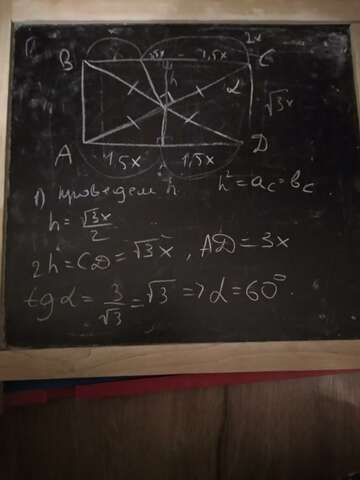 2x
B 1,5x C
h
α
√3x
A D
1,5x 1,5x
1) проведем h. h² = a_c · b_c
h = √3x/2
2h = CD = √3x, AD = 3x
tg α = 3/√3 = √3 => α = 60°.